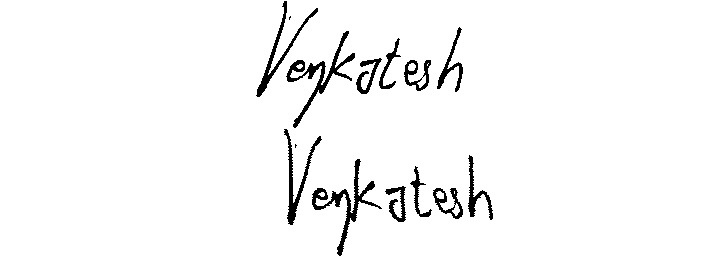 Venkatesh
Venkatesh